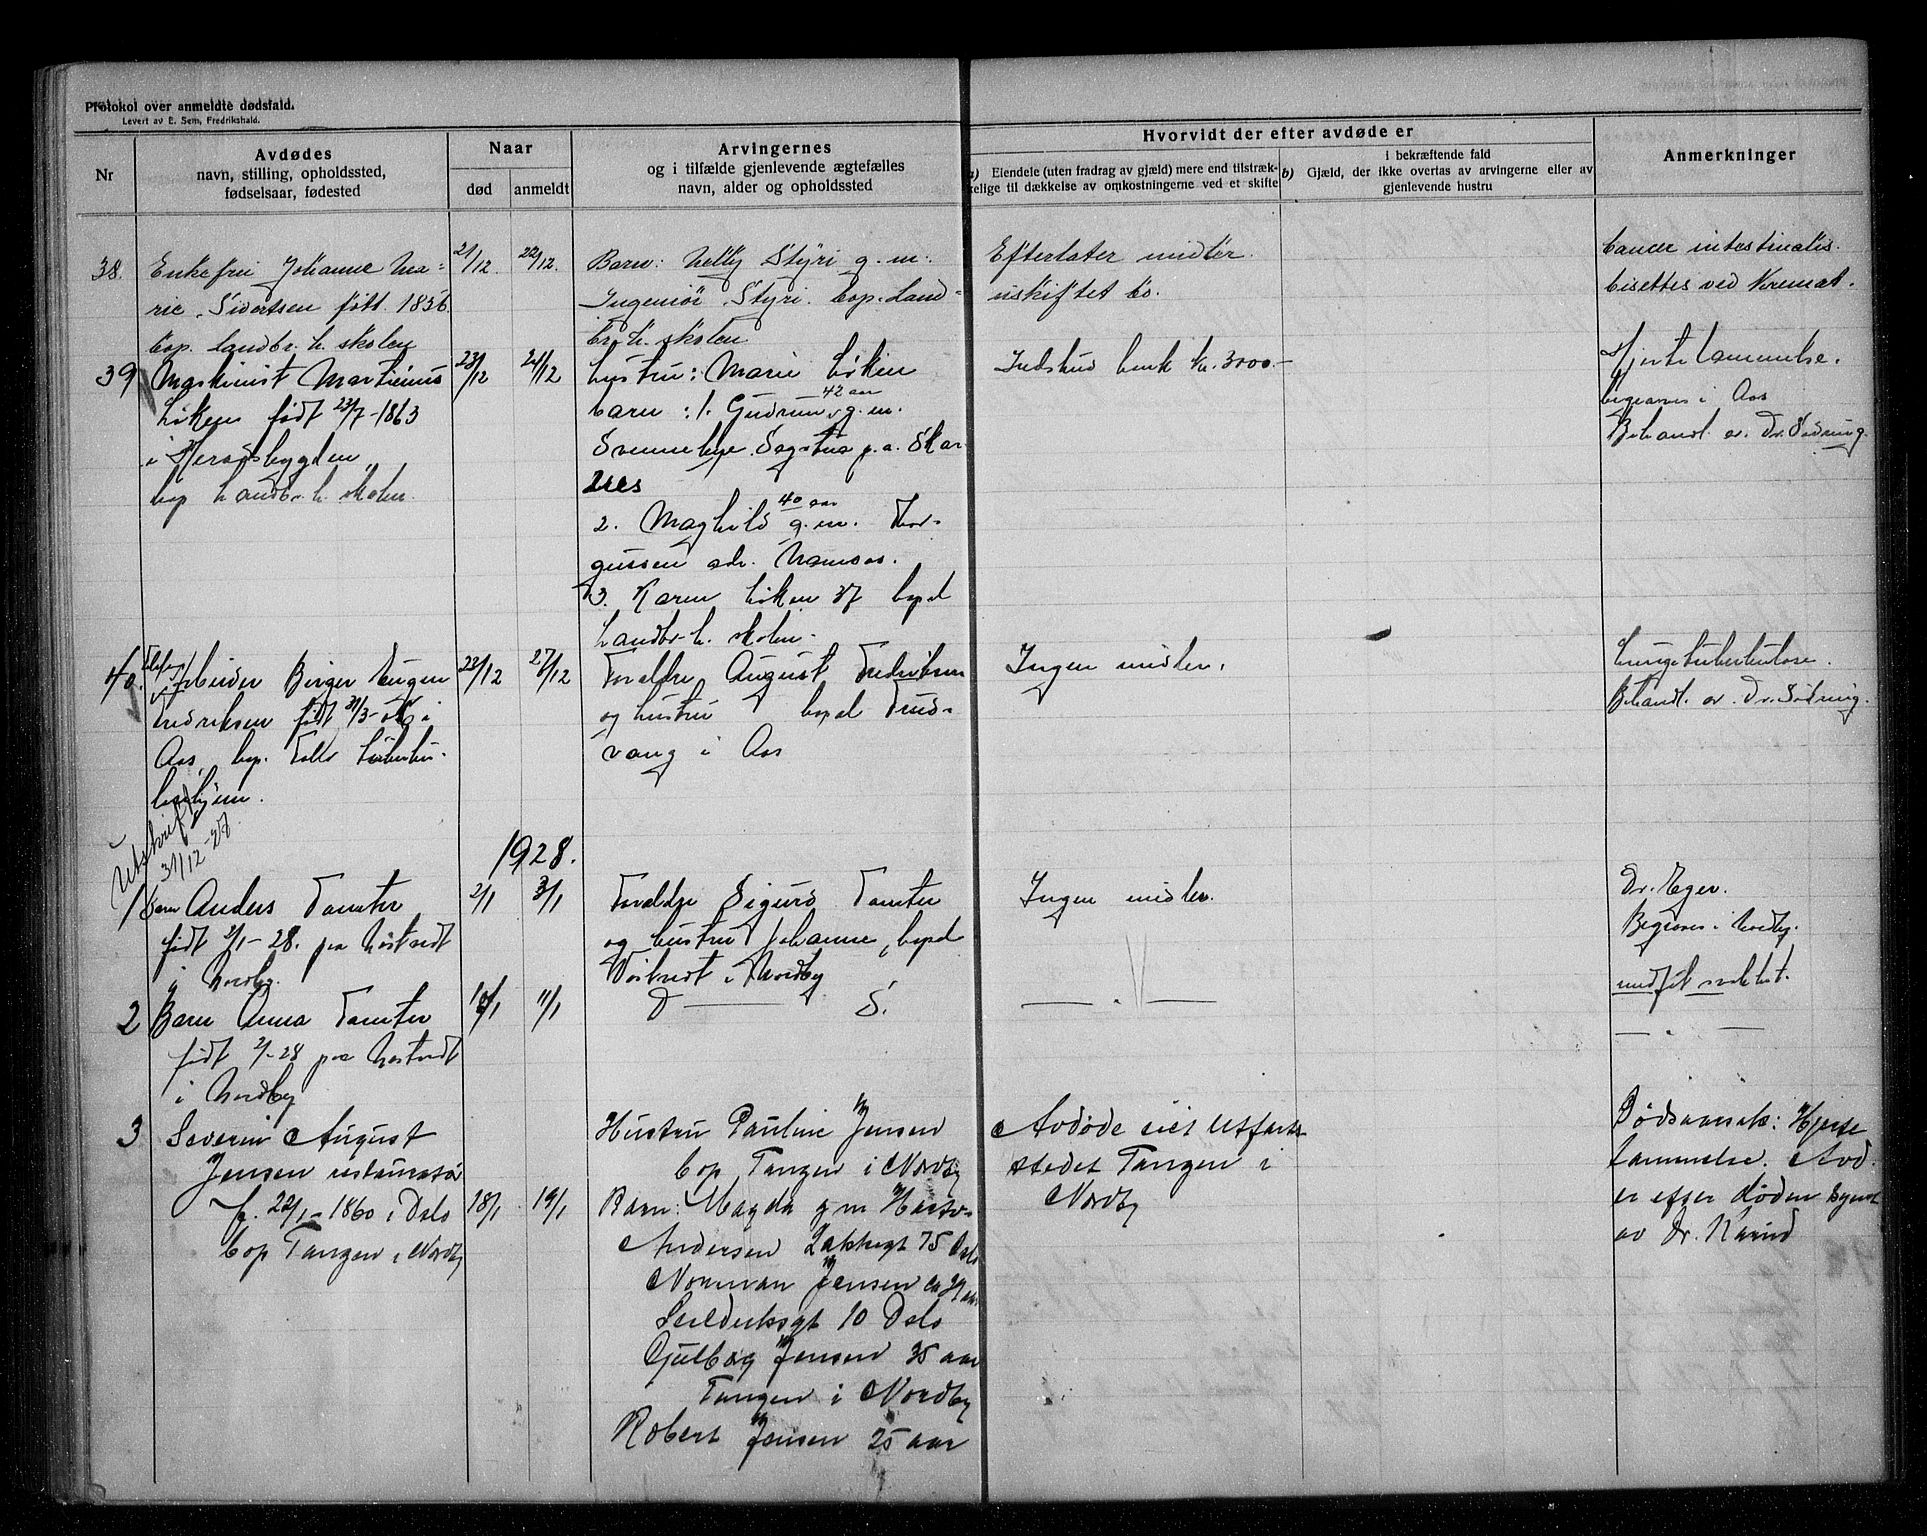 Protokol over anmeldte dødsfald.
Levert av E. Sem, Fredrikshald.
Nr
Avdødes
navn, stilling, opholdssted,
fødselsaar, fødested
Naar
død
anmeldt
Arvingernes
og i tilfælde gjenlevende ægtefælles
navn, alder og opholdssted
Hvorvidt der efter avdøde er
a) Eiendele (uten fradrag av gjæld) mere end tilstræk-
kelige til dækkelse av omkostningerne ved et skifte
i bekræftende fald
b) Gjæld, der ikke overtas av arvingerne eller av
gjenlevende hustru
Anmerkninger
38.
Enkefru Johanne Ma-
rie Sivertsen født 1836
bop. Landbr. h. skolen
21/12
22/12.
Barn: Nelly Styri g. m.
Ingeniør Styri. bop. Land-
br. h. skolen
Efterlater midler
uskiftet bo.
Cancer intestinalis.
bisettes ved Kremat.
39
Maskinist Martinius
Løken født 23/7-1863
i Heradsbygden
bop Landbr. h. skolen.
23/12
24/12
hustru: Marie Løken
barn: 1. Gudrun 42 aar g. m.
Svennebye Sagstua p. a. Skar
nes
2. Maghild 40 aar g. m. Tor-
gussen adr. Namsos.
3. Karen Løken 37 bopd
Landbr. h. skolen.
Indskud bank kr. 3000-
Hjertelammelse.
begraves i Aas
Behandl. av Dr. Sødring.
40.
Arbeider Birger Eugen
Fredriksen født 31/3- i
Aas, bop. Follo tuberku-
losehjem.
23/12
27/12
Foreldre August Fredriksen
og hustru bopd Trud-
vang i Aas
Ingen midler.
Lungetuberkulose.
Behandl. av Dr. Sødring.
Utskrift
31/12-27.
1928.
1
Barn Anders Tomter
født 2/1-28. paa Nøstvedt
i Nordby.
2/1
3/1
Foreldre Sigurd Tomter
og hustru Johanne, bopd
Nøstvedt i Nordby
Ingen midler.
Dr. Eger.
Begraves i Nordby.
medføt svakhet.
2
Barn Anna Tomter
født 2/1-28 paa Nøstvedt
i Nordby
10/1
11/1
D — S.
— " —
— " —
3
Severin August
Jensen restauratør
f. 22/1-1860 i Oslo
bop Tangen i Nordby
18/1
19/1
Hustru Pauline Jensen
bop Tangen i Nordby
Barn: Magda g m
Andersen Lakkegt 75 Oslo
Norman Jensen ca
Seilduksgt 10 Oslo
Gulborg Jensen 35 aar
Tangen i Nordby
Robert Jensen 25 aar
Avdøde eiet Utfarts
stedet Tangen i
Nordby
Dødsaarsak: Hjerte
lammelse. Avd.
er efter døden synet
av Dr.